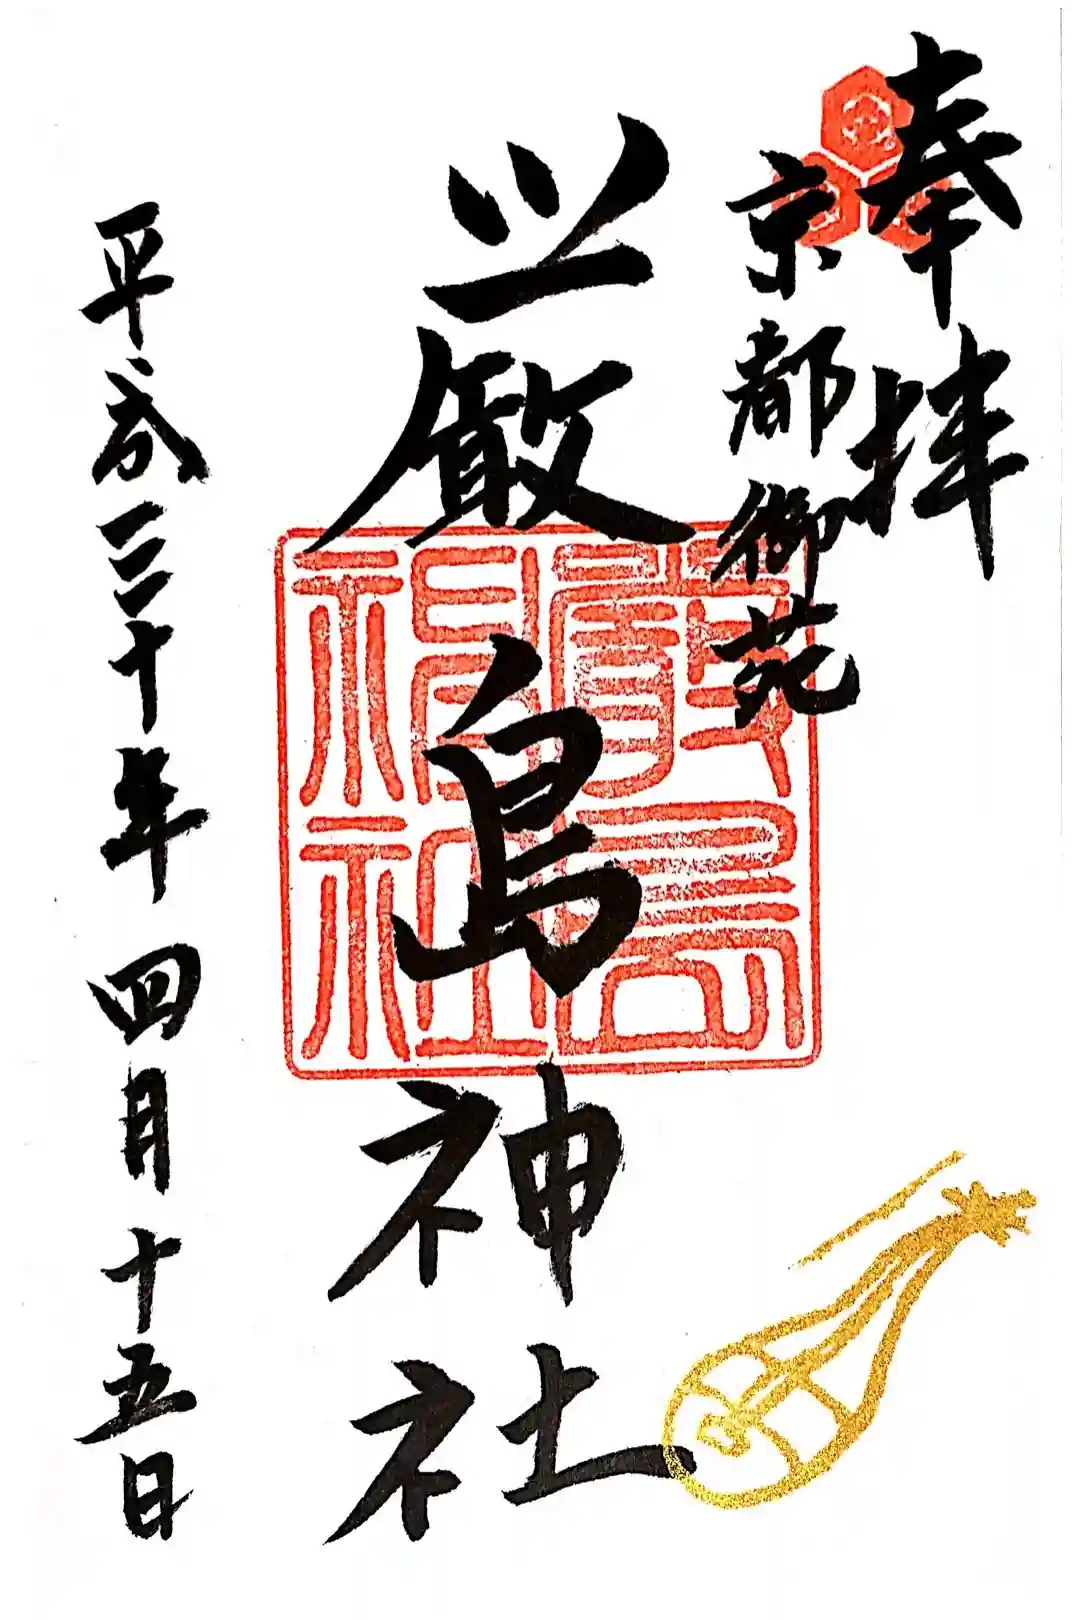 奉拝
京都御苑
厳島神社
平成三十年四月十五日
嚴島神社